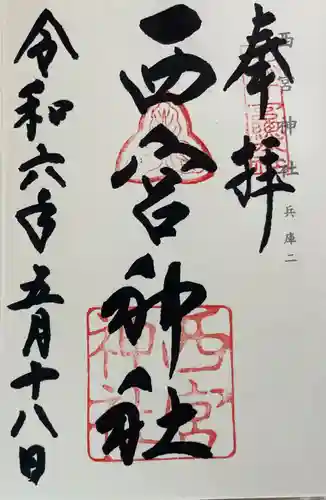 奉拝
西宮神社
兵庫二
西宮神社
令和六年五月十八日
西宮神社